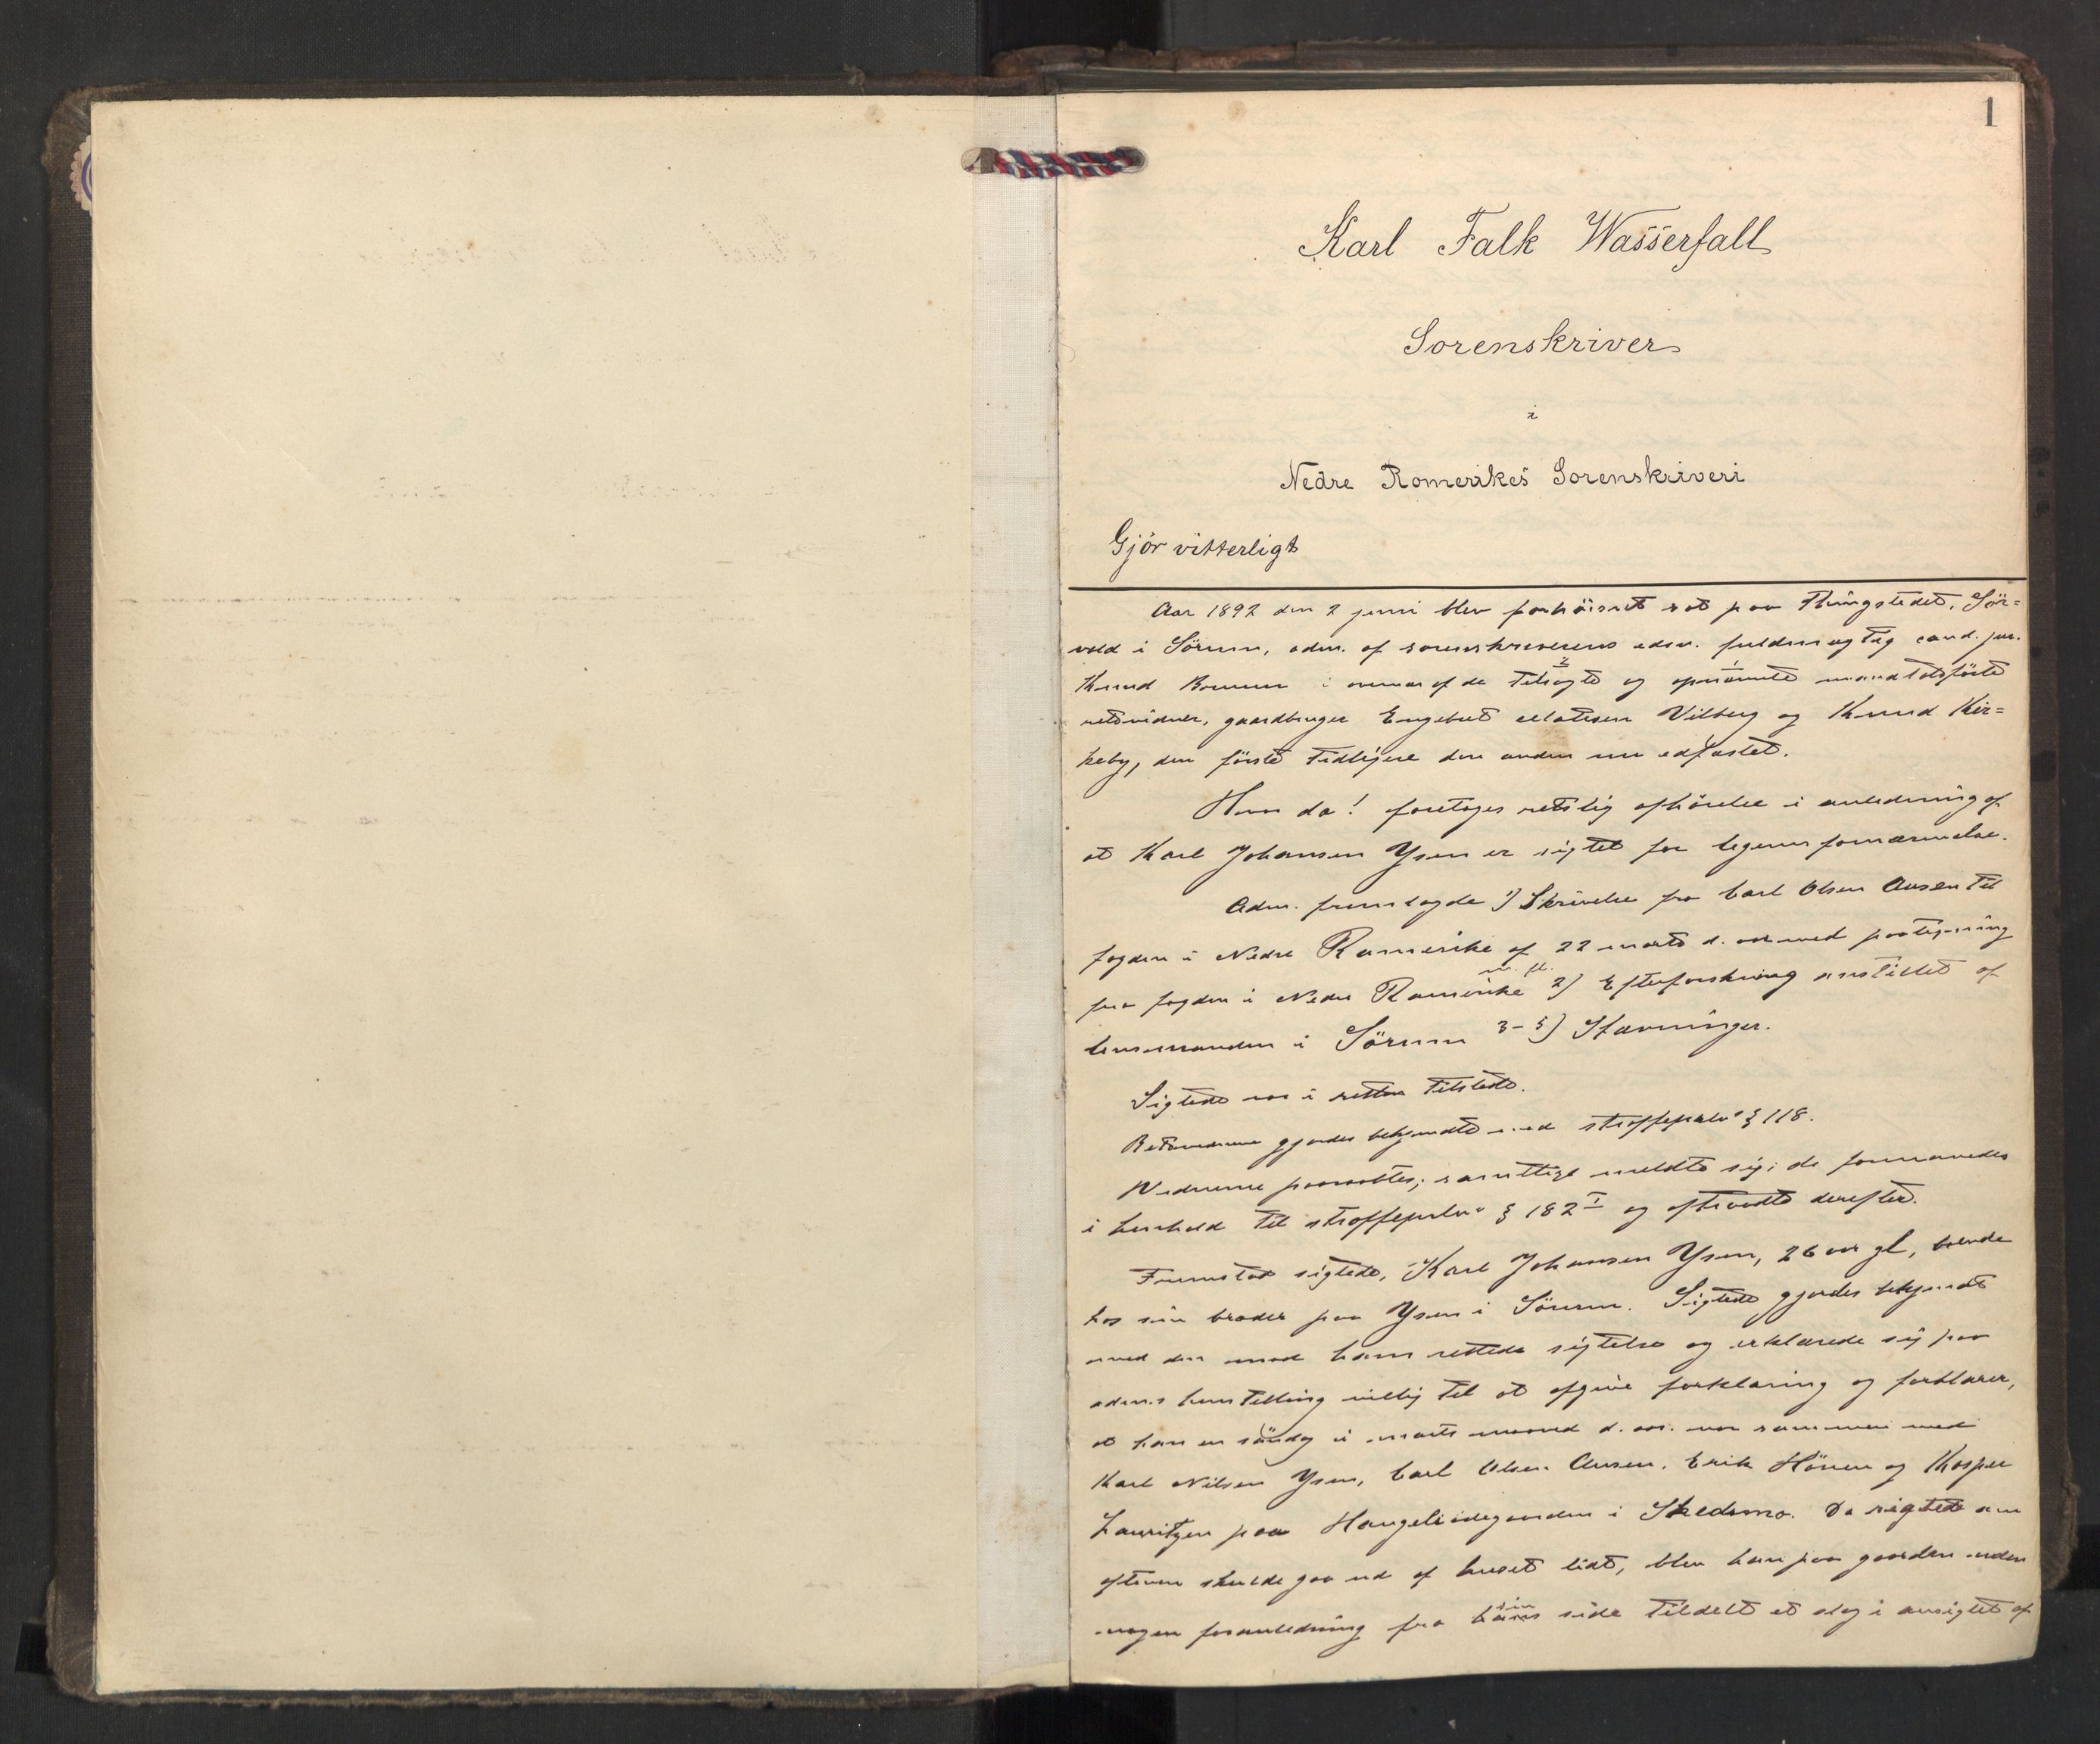 1
Karl Falk Wasserfall
Sorenskriver
i
Nedre Romerikes Sorenskriveri
Gjör vitterligt
Aar 1892 den 2 juni blev forhörsret sat paa Thingstedet, Sör=
vald i Sörum, adm. af sorenskriverens edsv. fuldmægtig cand. jur.
Knud Bruun i overvær af de tilsagte og opnævnte mandtalsförte
retsvidner, gaardbruger Engebret Vilberg og Knud Kir=
keby, den förste tidligere den anden nu edfæstet.
Hvor da! foretoges retslig afhörelse i anledning af
at Karl Johansen Ysen er sigtet for legemsfornærmelse.
Adm. fremlagde 1) Skrivelse fra Carl Olsen Ausen til
fogden i Nedre Romerike af 22 marts d. aar med paategning
fra fogden i Nedre Romerike m. fl. 2) Efterforskning anstillet af
lensmanden i Sörum 3-5) Stævninger.
Sigtede var i retten tilstede.
Retsvidnerne gjordes bekjendte med straffeprlov § 118.
Vidnerne paaraabtes; samtlige meldte sig; de formanedes
i henhold til straffeprlov § 182 I og aftraadte derefter.
Fremstod sigtede, Karl Johansen Ysen, 26 aar gl, boende
hos sin broder paa Ysen i Sörum. Sigtede gjordes bekjendt
med den mod ham rettede sigtelse og erklærede sig paa
adm.s henstilling villig til at afgive forklaring og forklarer,
at han en söndag i marts maaned d. aar. var sammen med
Karl Nilsen Ysen, Carl Olsen Ausen, Erik Hönen og Kasper
Lauritzen paa Haugelidegaarden i Skedsmo. Da sigtede om
aftenen skulde gaa ud af huset lidt, blev han paa gaarden uden
nogen foranledning fra sin side tildelt et slag i ansigtet af